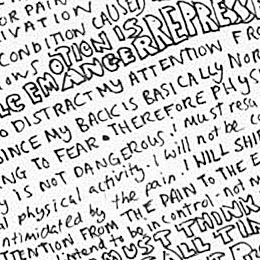 OR PAIN
IVATION
CONDITION CAUSED REPRESS
OWS OTION IS
LE EM ANGER
O DISTRACT MY ATTENTION FRO
SINCE MY BACK IS BASICALLY NOR
NG TO FEAR. THEREFORE PHYSI
Y IS NOT DANGEROUS. i must resu
al physical activity. I will not be co
ntimidated by the pain. I WILL SHIF
TTENTION FROM THE PAIN TO THE E
intend to be in control - not m
MUST THINK
ALL TIM